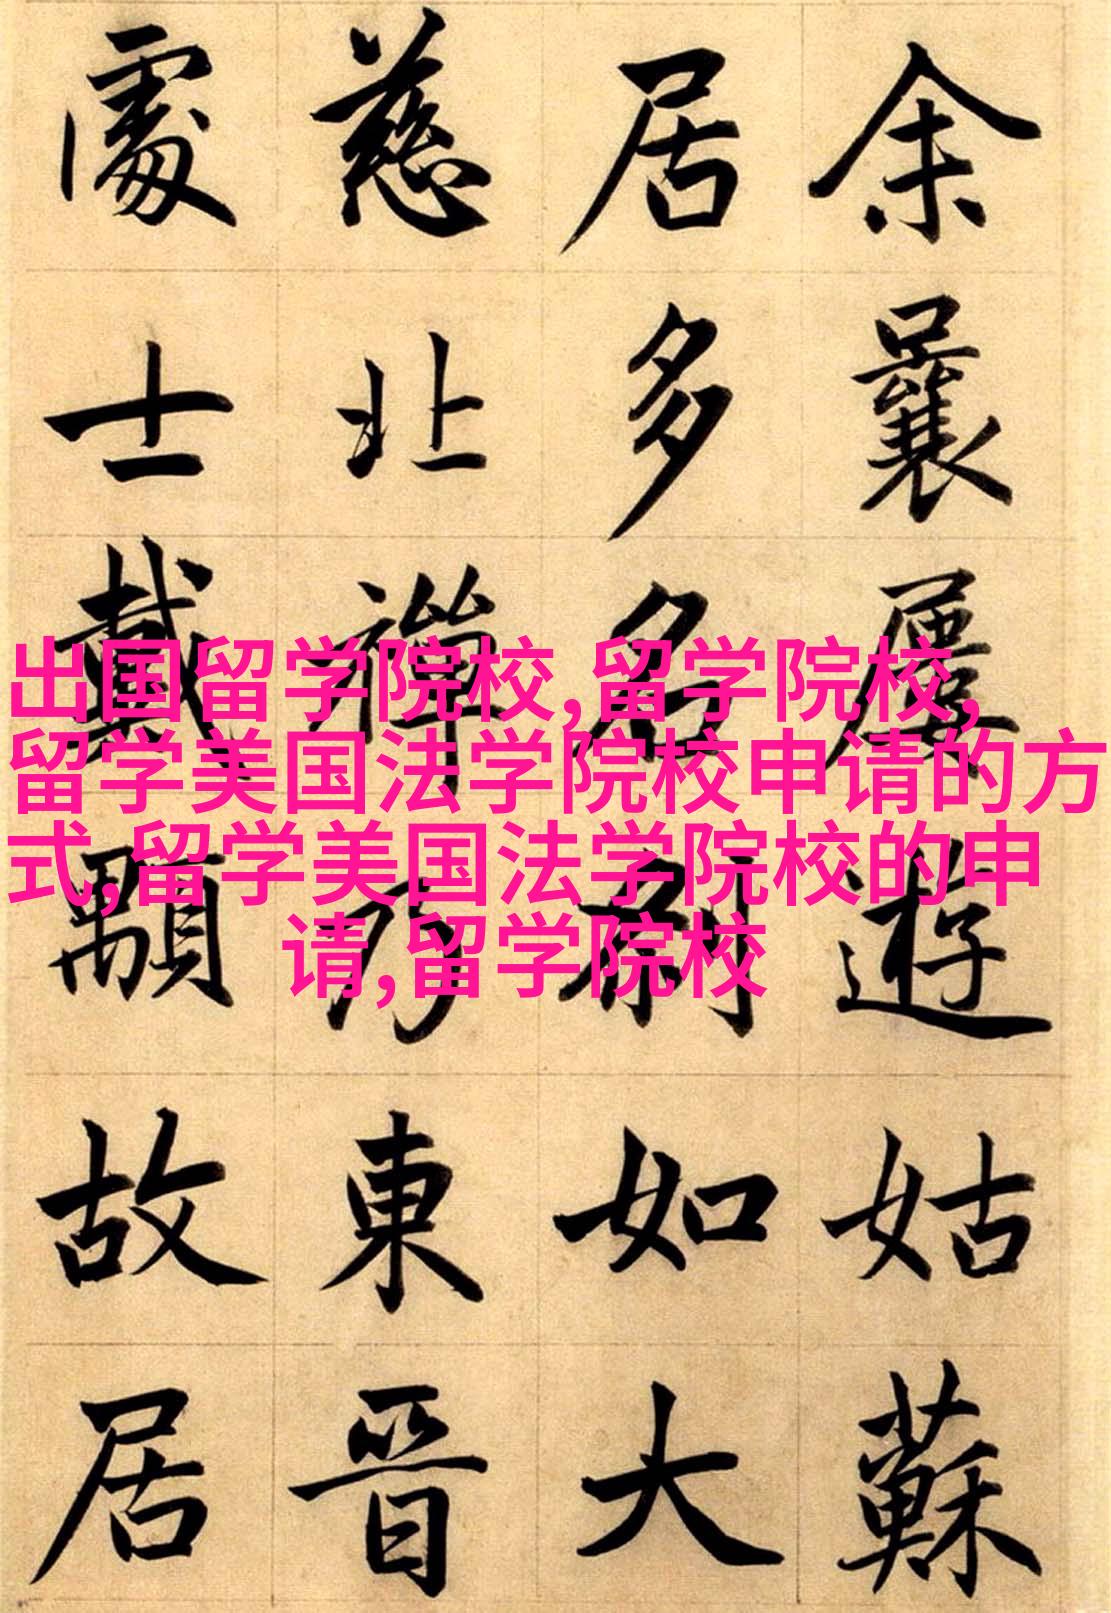 余曩屢遊姑蘇
居多名刹如大
慈北禪乃東晉
處士戴顒故居
出国留学院校,留学院校,
留学美国法学院校申请的方
式,留学美国法学院校的申
请,留学院校